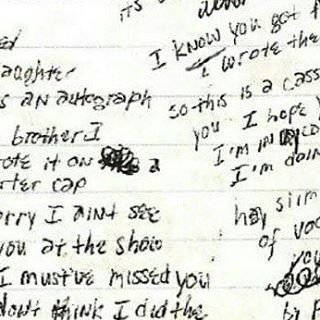 aughter
s an autograph
brother I
ote it on a
rter cap
orry I aint see
you at the show
I must've missed you
dont think I did the
its
I know you got
I wrote the
so this is a cass
you I hope
I'm in
I'm doin
hey slim
of voc
you
by